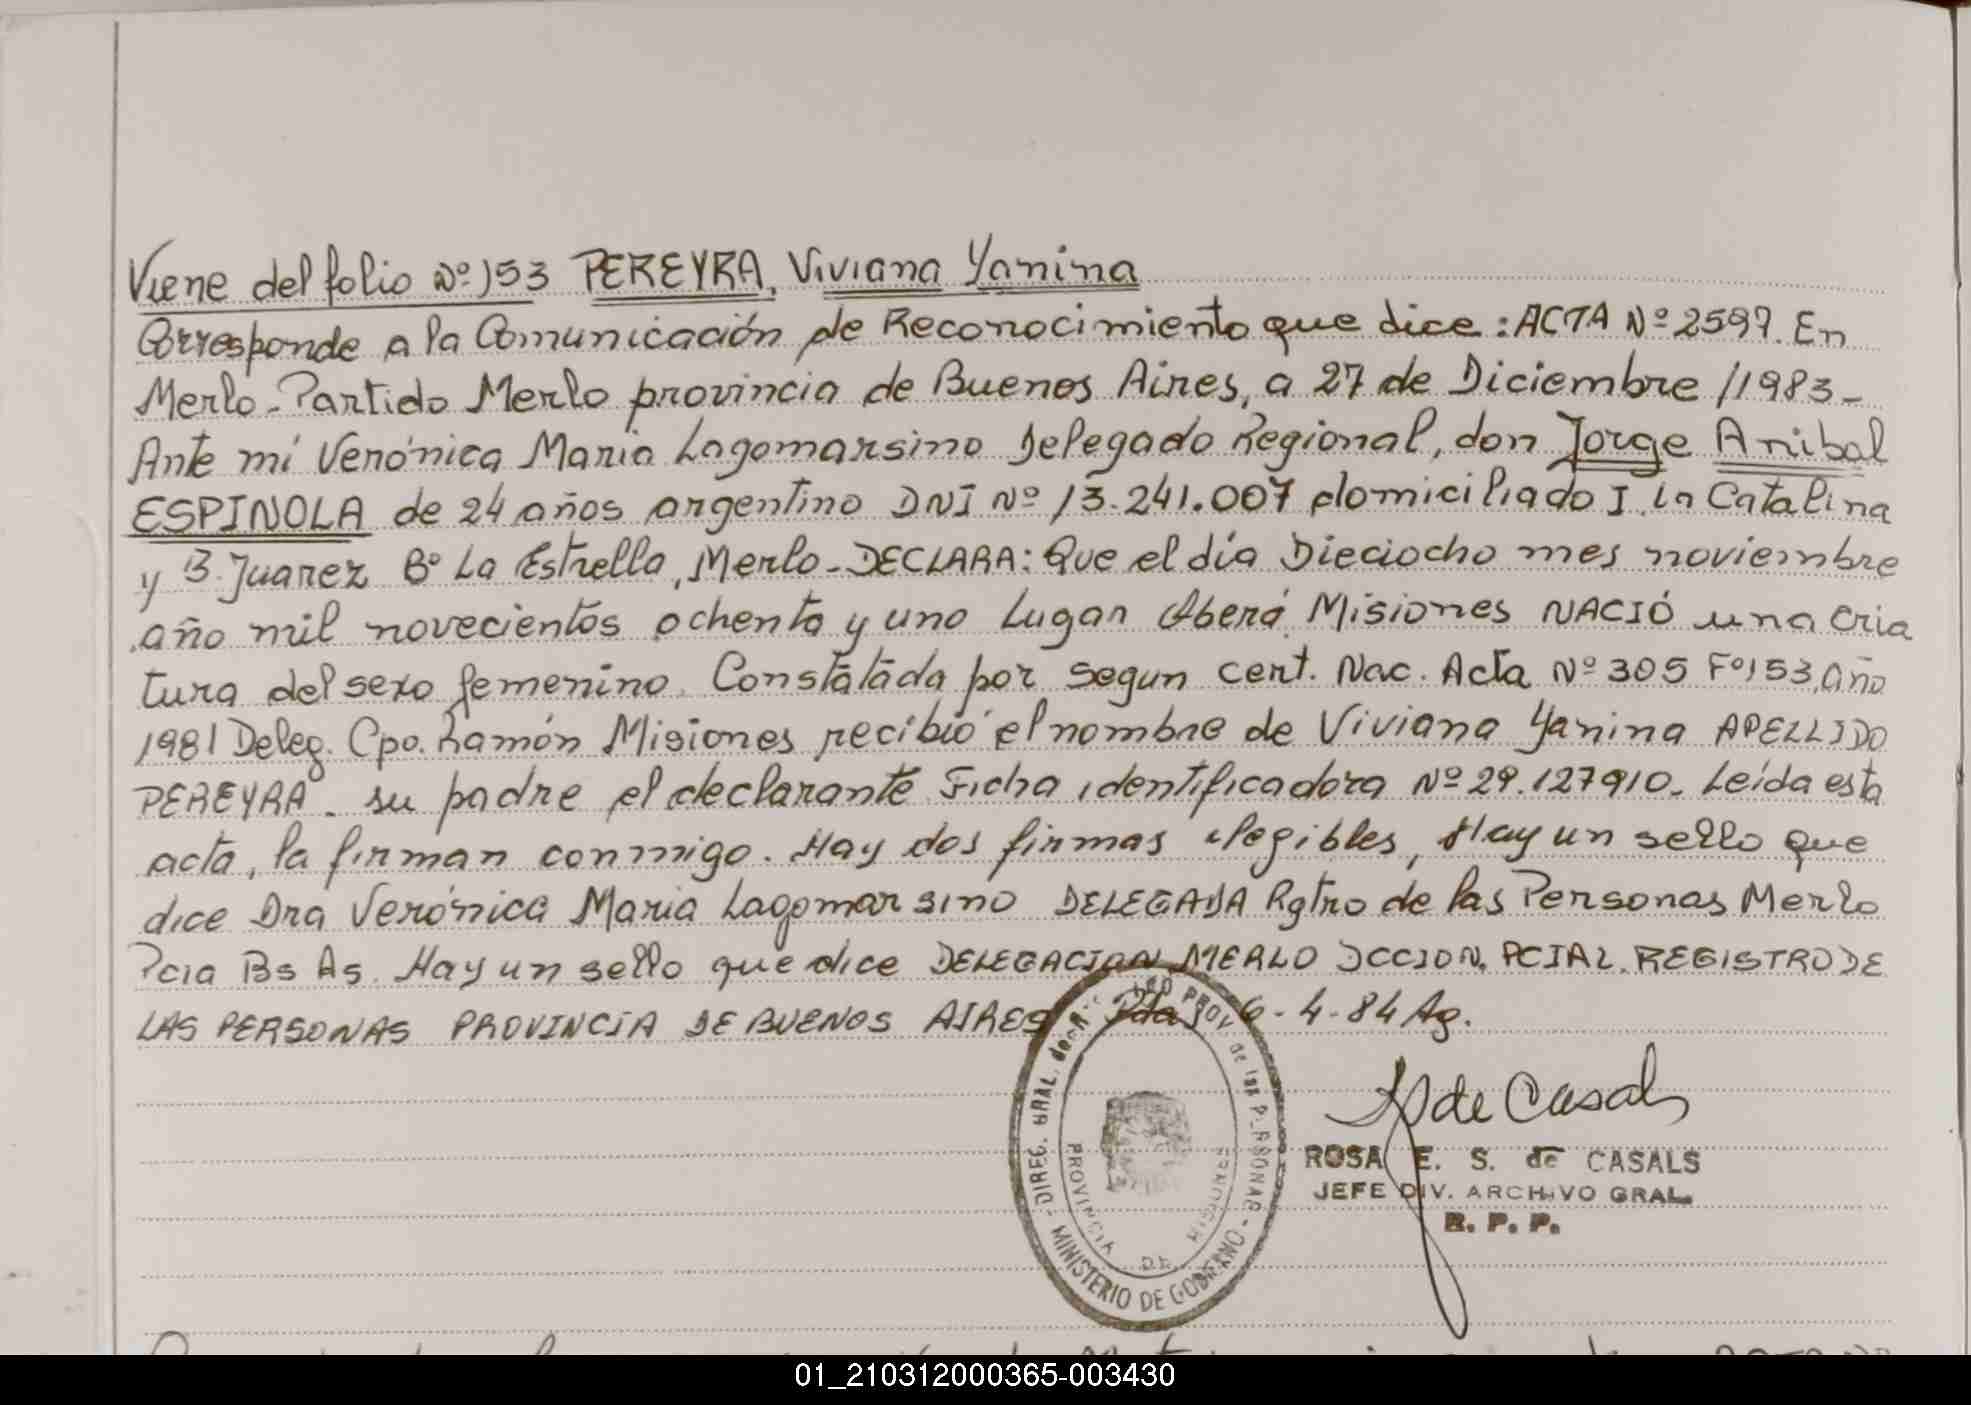 Viene del folio Nº 153 PEREYRA, Viviana Yanina
Corresponde a la Comunicación de Reconocimiento que dice: ACTA Nº 2597. En
Merlo - Partido Merlo provincia de Buenos Aires, a 27 de Diciembre /1983 -
Ante mí Verónica Maria Lagomarsino Delegado Regional, don Jorge Anibal
ESPINOLA de 24 años argentino DNI Nº 13.241.007 domiciliado I. La Catalina
y B. Juarez Bº La Estrella, Merlo - DECLARA: Que el día Dieciocho mes noviembre
año mil novecientos ochenta y uno Lugar Oberá Misiones NACIÓ una cria
tura del sexo femenino. Constatada por segun cert. Nac. Acta Nº 305 Fº 153, año
1981 Deleg. Cpo. Ramón Misiones recibió el nombre de Viviana Yanina APELLIDO
PEREYRA. su padre el declarante Ficha identificadora Nº 29.127910. Leída esta
acta, la firman conmigo. Hay dos firmas ilegibles, Hay un sello que
dice Dra Verónica Maria Lagomarsino DELEGADA Rgtro de las Personas Merlo
Pcia Bs As. Hay un sello que dice DELEGACION MERLO DCCION. PCIAL. REGISTRO DE
LAS PERSONAS PROVINCIA DE BUENOS AIRES Pdas 6-4-84 Ag.
R de Casals
ROSA E. S. de CASALS
JEFE DIV. ARCHIVO GRAL.
R. P. P.
DIREC. GRAL. PROV. de las PERSONAS
MINISTERIO DE GOBIERNO
PROVINCIA DE MISIONES
01_210312000365-003430